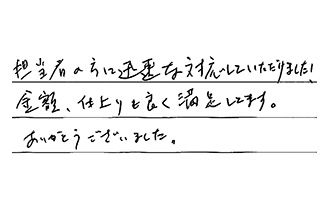 担当者の方に迅速な対応していただけました!
金額、仕上りも良く満足してます。
ありがとうございました。